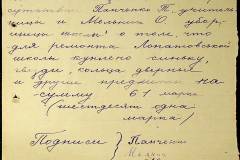 Панченко Т. учитель
ницы и Мельник О. убор
щицы школы о том, что
для ремонта Лопатовской
школы куплено синьку,
гвозди, кольца дверные
и другие предметы на
сумму 61 марка
(шестьдесят одна
марка)
Подписи } Панченко